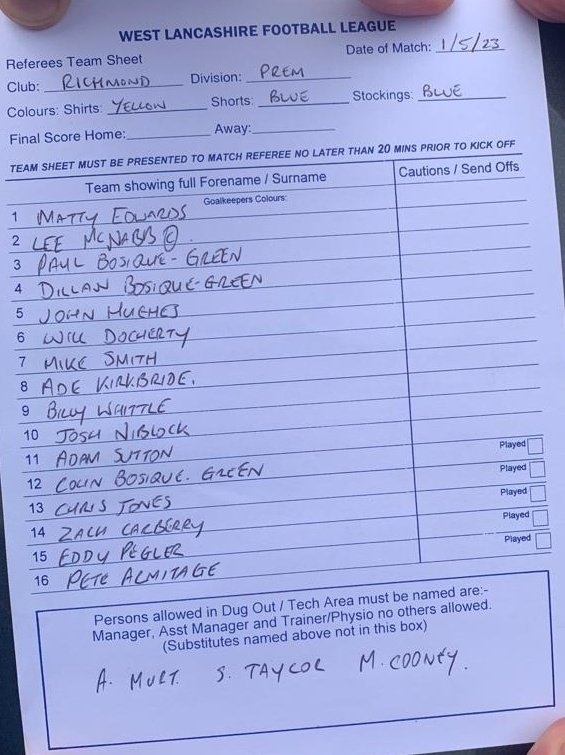 WEST LANCASHIRE FOOTBALL LEAGUE
Referees Team Sheet Date of Match: 1/5/23
Club: RICHMOND Division: PREM
Colours: Shirts: YELLOW Shorts: BLUE Stockings: BLUE
Final Score Home: Away:
TEAM SHEET MUST BE PRESENTED TO MATCH REFEREE NO LATER THAN 20 MINS PRIOR TO KICK OFF
Team showing full Forename / Surname Cautions / Send Offs
Goalkeepers Colours:
1 MATTY EDWARDS
2 LEE MCNABB ©.
3 PAUL BOSIQUE-GREEN
4 DILLAN BOSIQUE-GREEN
5 JOHN HUGHES
6 WILL DOCHERTY
7 MIKE SMITH
8 ADE KIRKBRIDE.
9 BILLY WHITTLE
10 JOSH NIBLOCK
11 ADAM SUTTON Played
12 COLIN BOSIQUE. GREEN Played
13 CHRIS JONES Played
14 ZACH CARBERRY Played
15 EDDY PEGLER Played
16 PETE ARMITAGE
Persons allowed in Dug Out / Tech Area must be named are:-
Manager, Asst Manager and Trainer/Physio no others allowed.
(Substitutes named above not in this box)
A. S. TAYLOR M. COONEY.